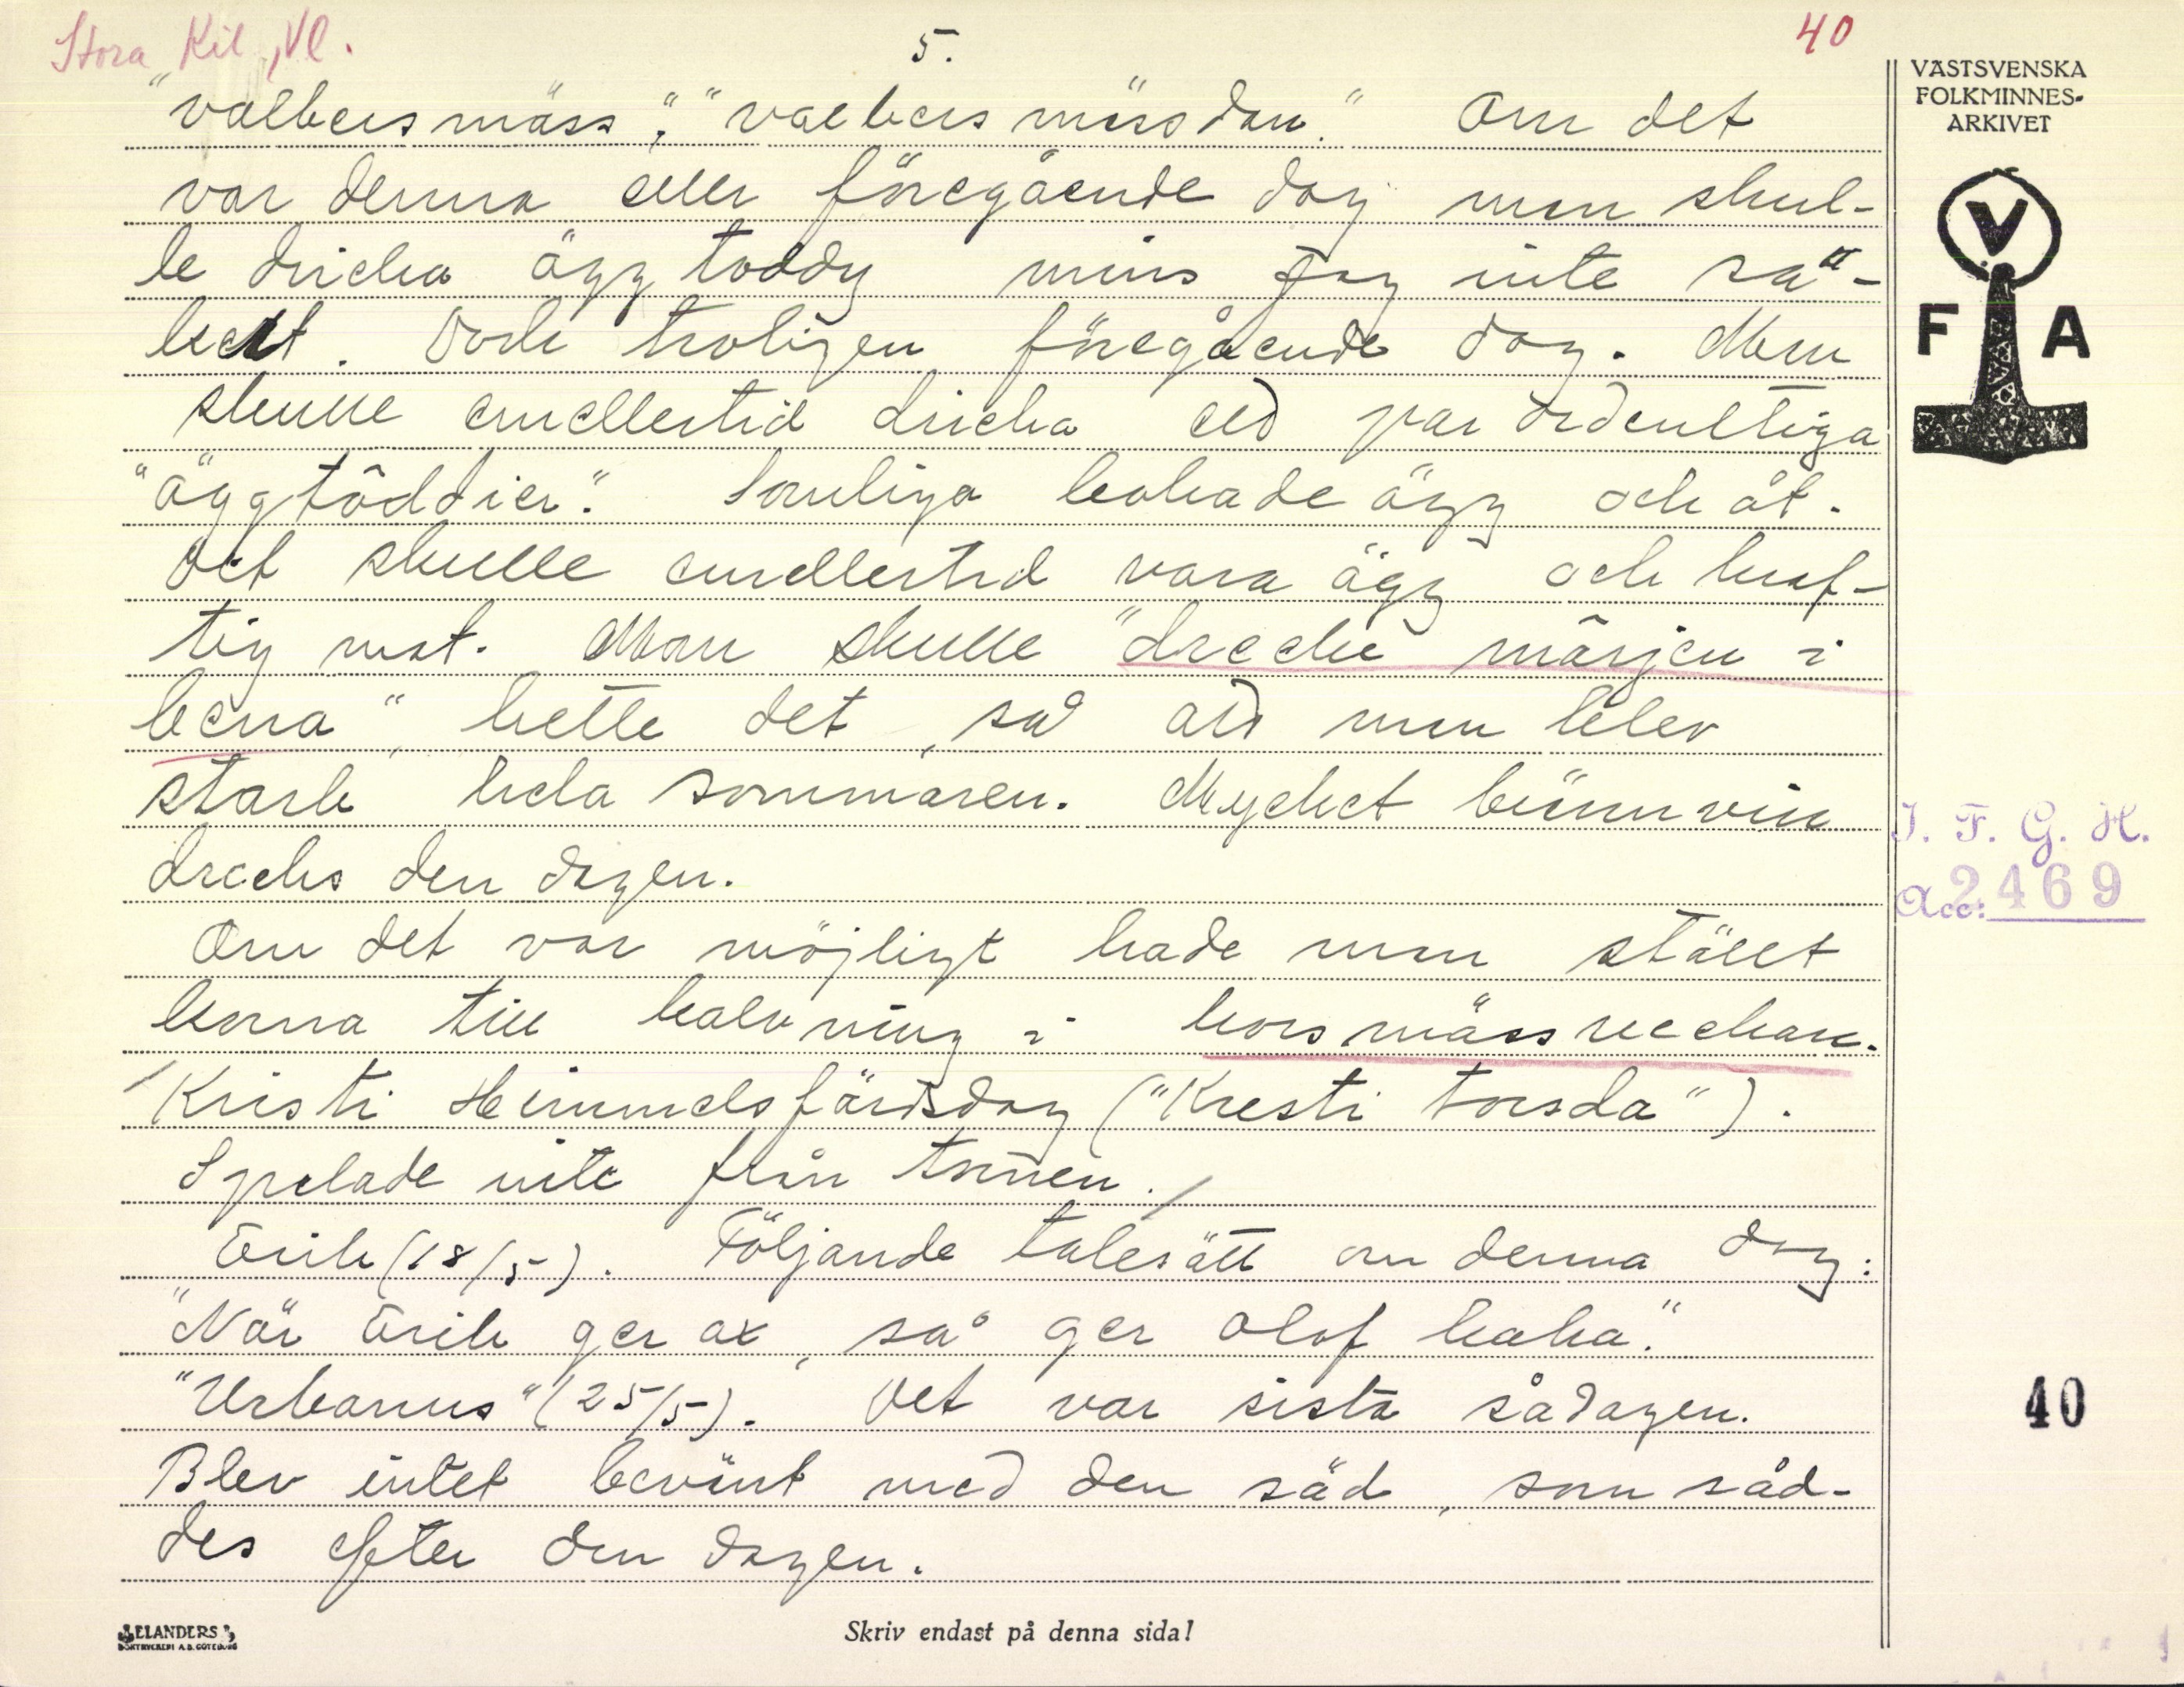 Stora Kil, Vl.
5.
40
"valbersmäss", "valbersmässdan." Om det
var denna eller föregående dag man skul-
le dricka äggtoddy mins jag inte sä-
kert. Dock troligen föregående dag. Man
skulle emellertid dricka ett par ordentliga
"äggtôddier." Somliga kokade ägg och åt.
Det skulle emellertid vara ägg och kraf-
tig mat. Man skulle "drecke märjen i
bena", hette det, så att man blev
stark hela sommaren. Mycket brännvin
dracks den dagen.
Om det var möjligt hade man ställt
korna till kalvning i korsmässveckan.
/Kristi Himmelsfärdsdag ("Kresti torsda").
Spelade inte från tornen./
Erik (18/5). Följande talesätt om denna dag:
"När Erik ger ax, så ger Olof kaka."
"Urbanus" (25/5). Det var sista sådagen.
Blev intet bevänt med den säd, som såd-
des efter den dagen.
VÄSTSVENSKA
FOLKMINNES-
ARKIVET
V
F A
I. F. G. H.
Acc: 2469
40
ELANDERS
BOKTRYCKERI A.B. GÖTEBORG
Skriv endast på denna sida!